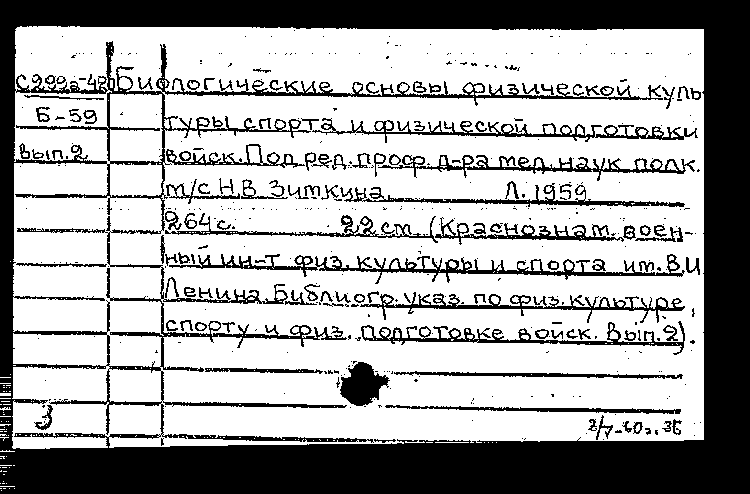 С299а-480 Биологические основы физической куль-
Б-59 туры, спорта и физической подготовки
Вып.2 войск. Под ред. проф. д-ра мед. наук полк.
м/с Н.В. Зиткина. Л. 1959
264 с. 22 см. (Краснознам. воен-
ный ин-т физ. культуры и спорта им. В.И.
Ленина. Библиогр. указ. по физ. культуре,
спорту и физ. подготовке войск. Вып. 2).
3